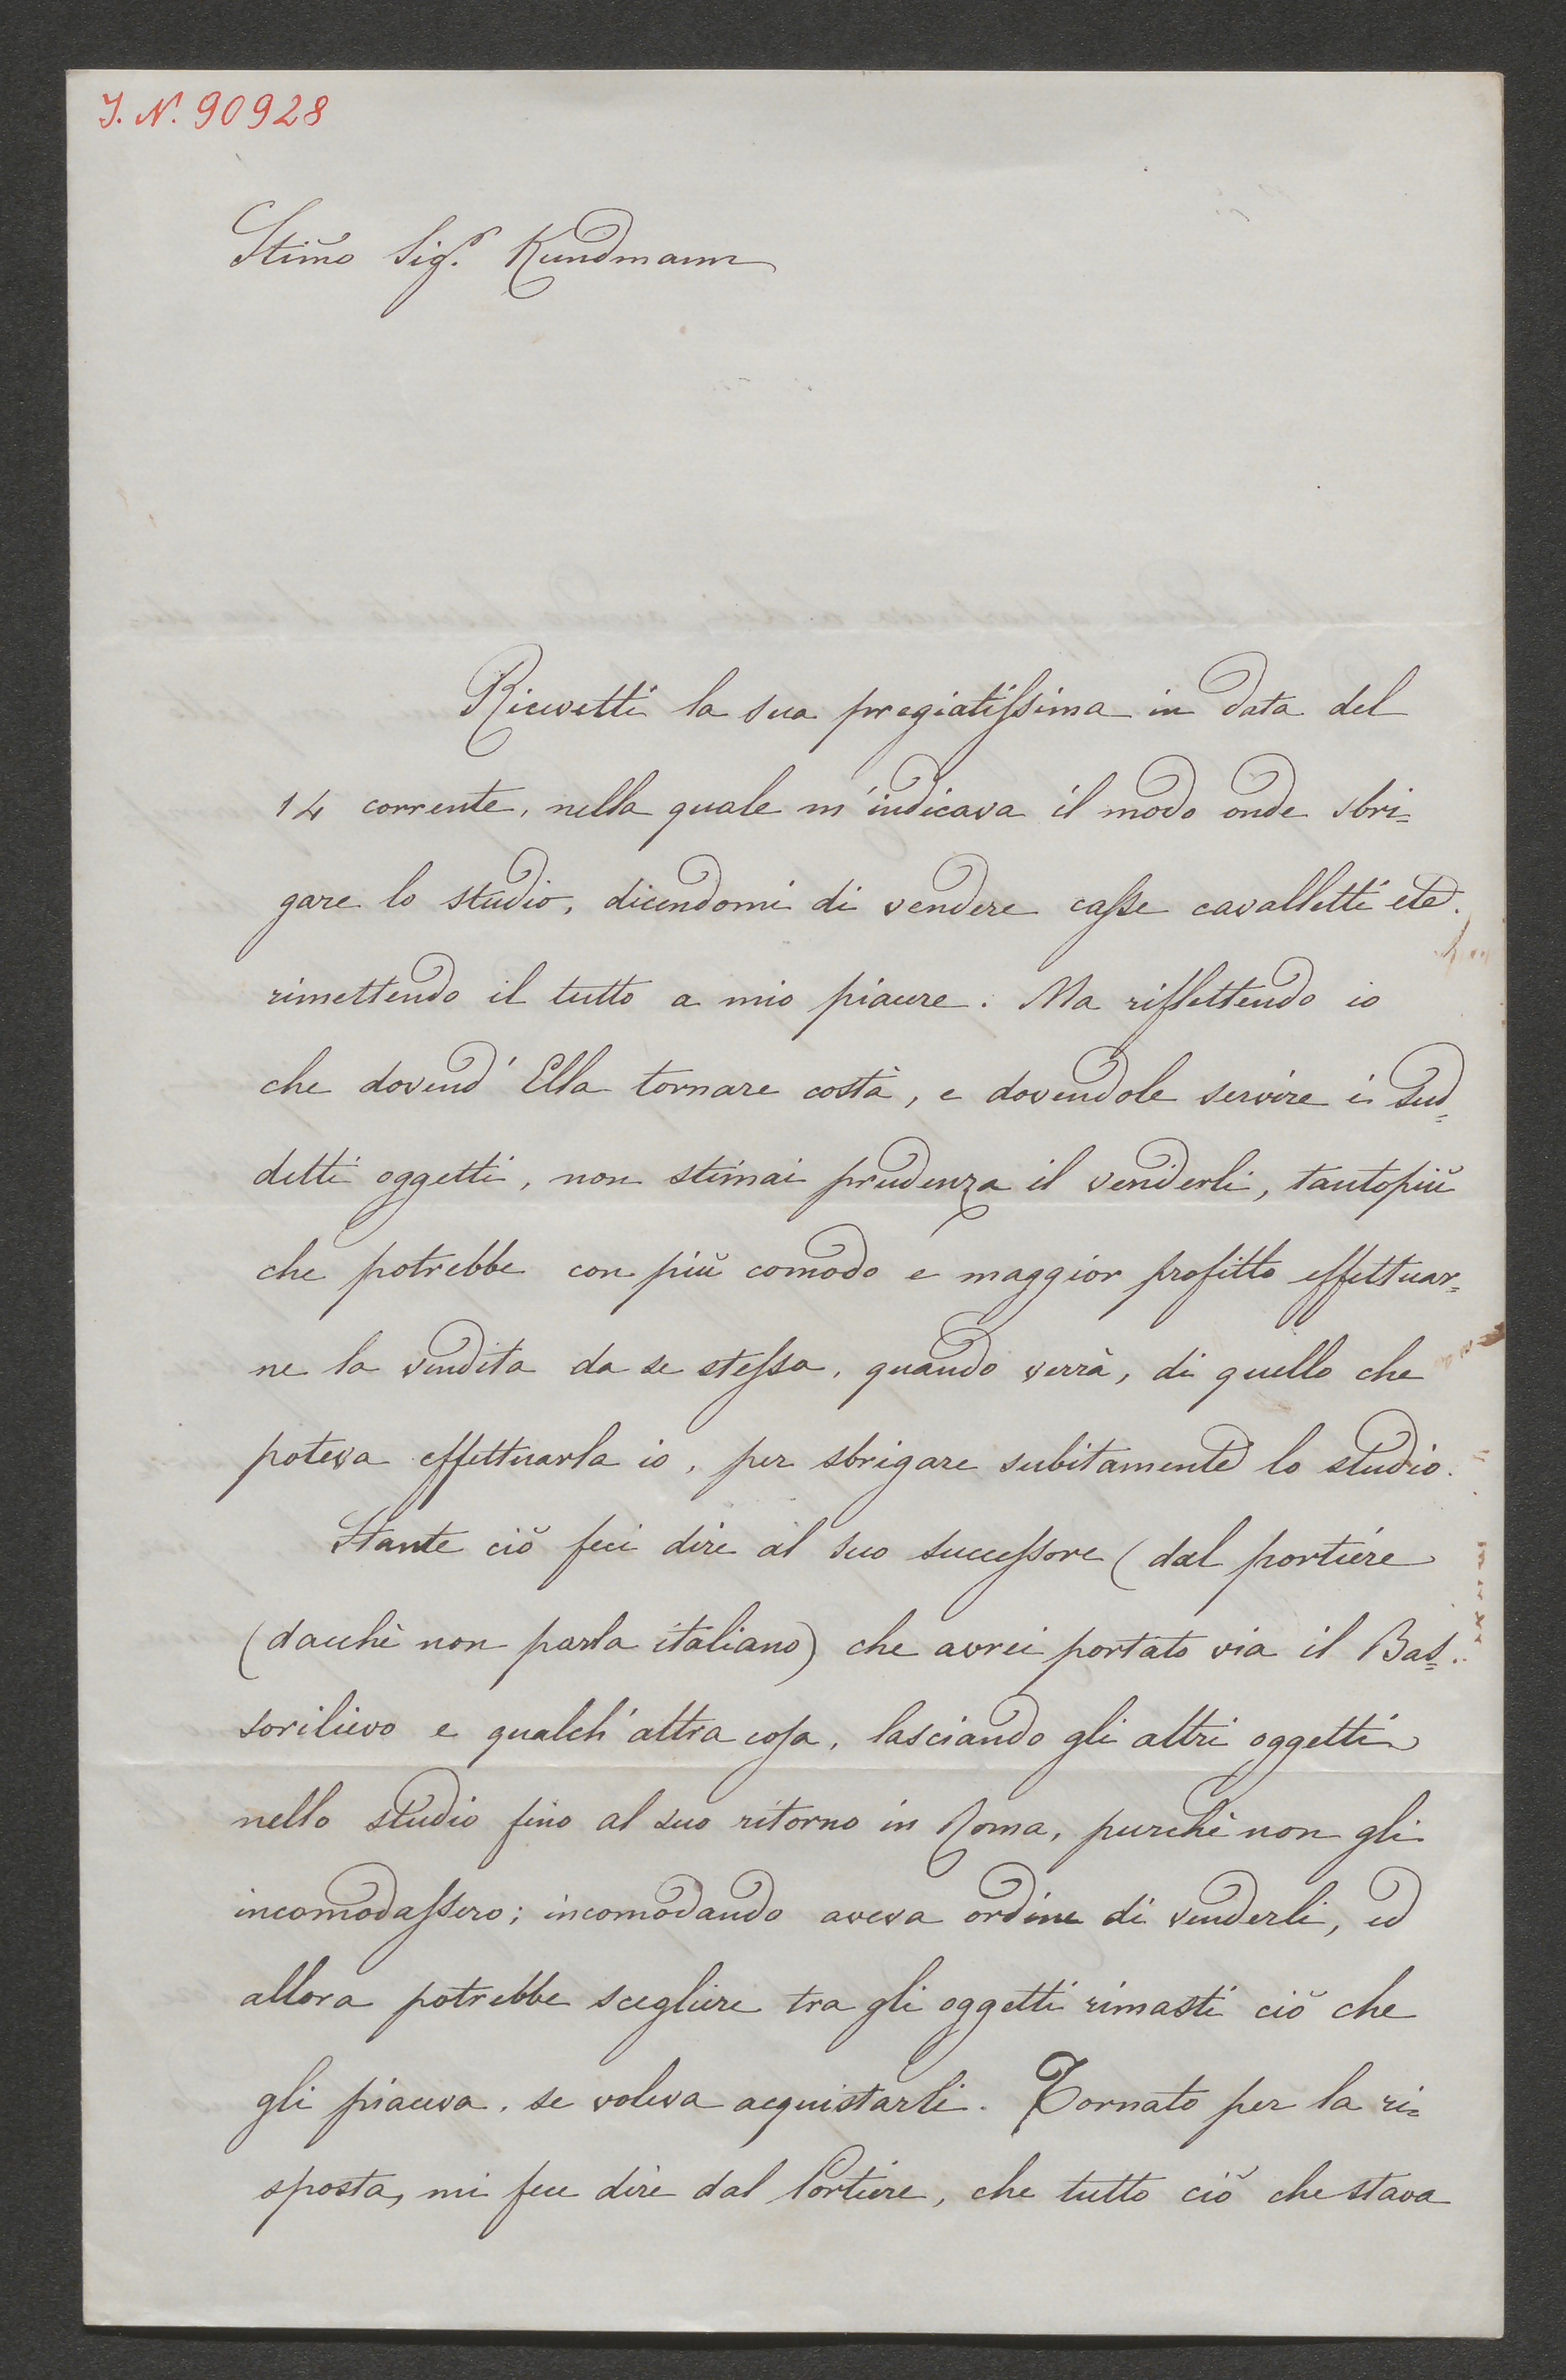 J. N. 90928
Stimo Sigr. Kundmann
Ricevetti la sua pregiatissima in data del
14 corrente, nella quale m'indicava il modo onde sbri=
gare lo studio, dicendomi di vendere casse cavalletti etc.
rimettendo il tutto a mio piacere. Ma riflettendo io
che dovend' Ella tornare costà, e dovendole servire i sud=
detti oggetti, non stimai prudenza il venderli, tantopiù
che potrebbe con più comodo e maggior profitto effettuar=
ne la vendita da se stessa, quando verrà, di quello che
poteva effettuarla io, per sbrigare subitamente lo studio.
Stante ciò feci dire al suo successore (dal portiere
(dacchè non parla italiano) che avrei portato via il Bas=
sorilievo e qualch'altra cosa, lasciando gli altri oggetti
nello studio fino al suo ritorno in Roma, purchè non gli
incomodassero; incomodando aveva ordine di venderli, ed
allora potrebbe scegliere tra gli oggetti rimasti ciò che
gli piaceva, se voleva acquistarli. Tornato per la ri=
sposta, mi fece dire dal Portiere, che tutto ciò che stava